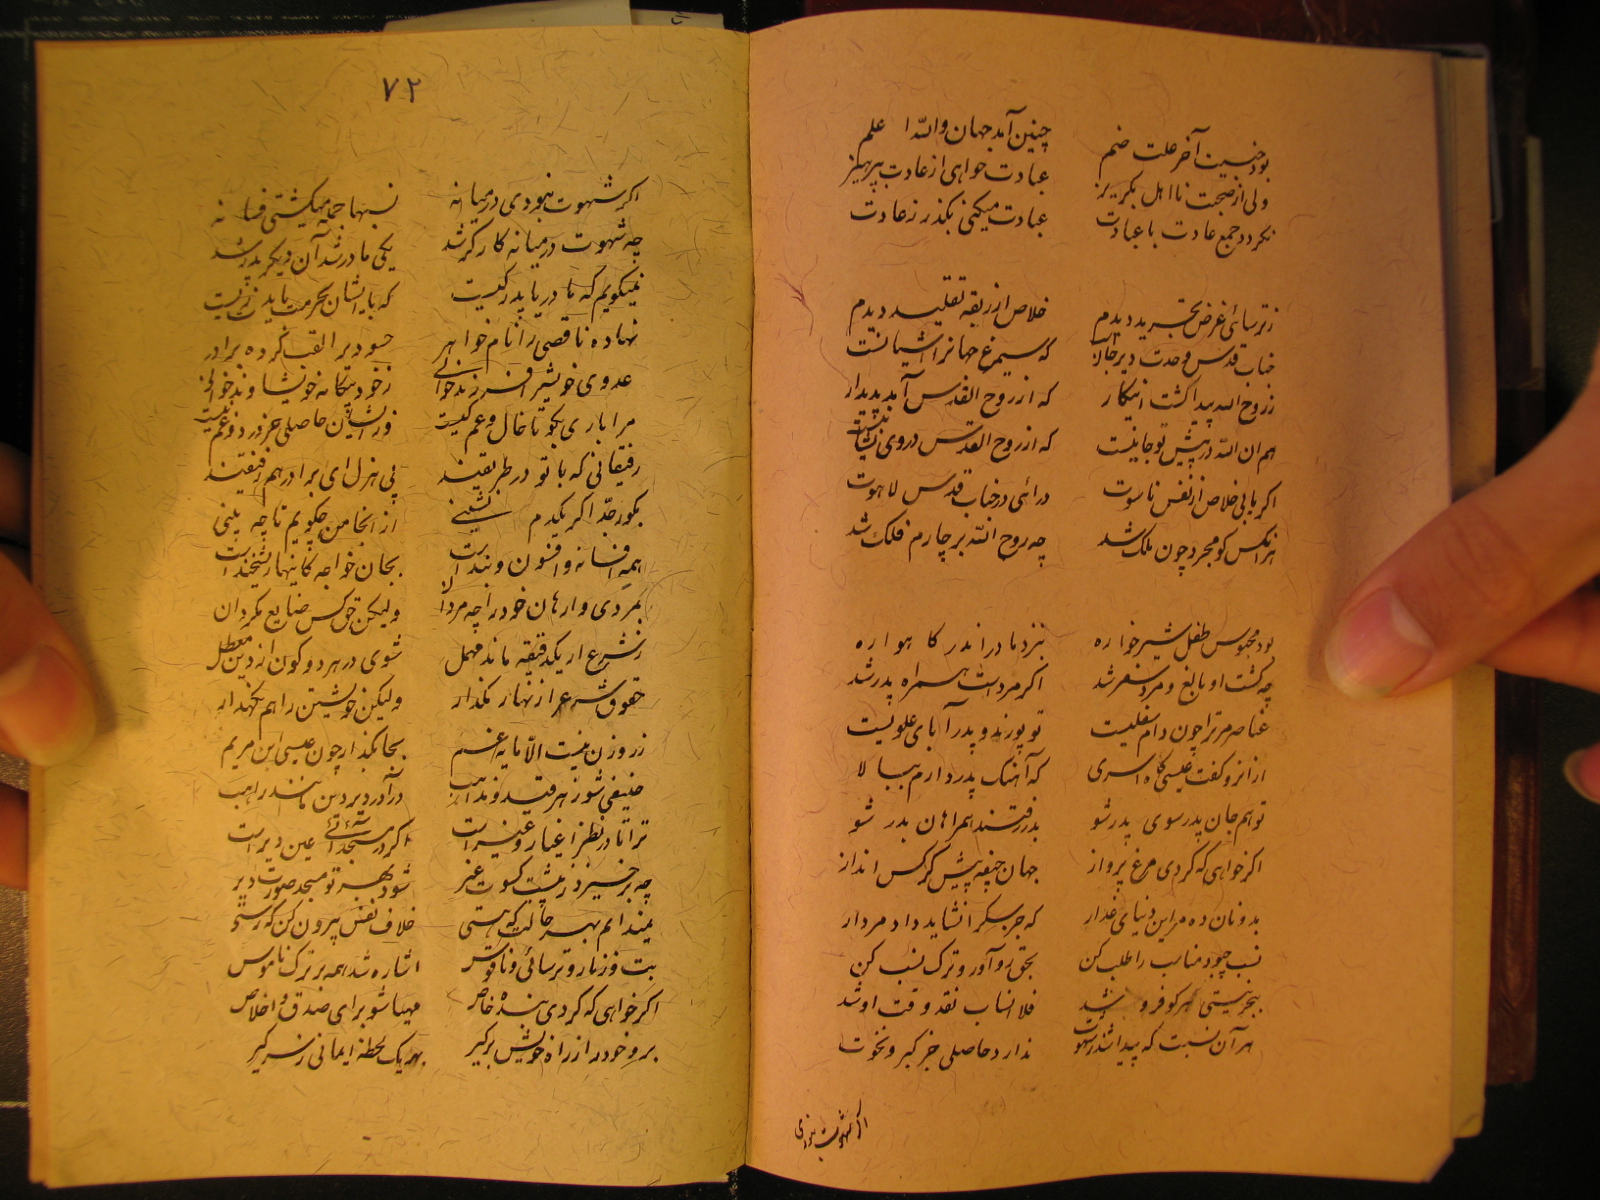 بود جنسیت آخر علت ضم چنین آمد جهان والله اعلم
ولی از صحبت نااهل بگریز عبادت خواهی از عادت بپرهیز
نگردد جمع عادت با عبادت عبادت میکنی بگذر ز عادت
ز ترسائی غرض تجرید دیدم خلاص از ربقه تقلید دیدم
جناب قدس وحدت دیر جان که سیمرغ جهانرا آشیانست
ز روح الله پیدا گشت اینکار که از روح القدس آمد پدیدار
هم از الله در پیش تو جانیست که از روح القدس در وی نشانیست
اگر یابی خلاص از نفس ناسوت درائی در جناب قدس لاهوت
هر آنکس کو مجرد چون ملک شد چه روح الله بر چارم فلک شد
بود محبوس طفل شیرخواره بنزد مادر اندر گاهواره
چه گشت او بالغ و مرد سفر شد اگر مرد است همراه پدر شد
عناصر مر ترا چون ام سفلیست تو پور و پدر آبای علویست
از آنرو گفت عیسی گاه اسری که آهنگ پدر دارم ببالا
تو هم جان پدر سوی پدر شو بدر رفتند همراهان بدر شو
اگر خواهی که گردی مرغ پرواز جهان جیفه پیش کرکس انداز
بدونان ده مر این دنیای غدار که جز سگ را نشاید داد مردار
نسب چبود مناسب را طلب کن بحق رو آور و ترک نسب کن
ببحر نیستی هر کو فرو شد فلا انساب نقد وقت او شد
هر آن نسبت که پیدا شد ز شهوت ندارد حاصلی جز کبر و نخوت
اگر شهوت نبودی
۷۲
اگر شهوت نبودی در میانه نسبها جمله میگشتی فسانه
چه شهوت در میانه کارگر شد یکی مادر شد آن دیگر پدر شد
نمیگویم که مادر یا پدر کیست که با ایشان بحرمت باید زیست
نهاده ناقصی را نام خواهر حسود برا لقب کرده برادر
عدوی خویش را فرزند خوانی ز خود بیگانه خویشاوند خوانی
مرا باری بگو تا خال و عم کیست وز ایشان حاصلی جز درد و غم چیست
رفیقانی که با تو در طریقند پی هزل ای برادر هم رفیقند
بکوی جد اگر یکدم نشینی از اینجا من چگویم تا چه بینی
همه افسانه و افسون و بند است بجان خواجه کاینها ریشخند است
بمردی وارهان خود را چه مردان ولیکن حق کس ضایع مگردان
ز شرع ار یکدقیقه ماند مهمل شوی در هر دو کون از دین معطل
حقوق شرع را زنهار مگذار ولیکن خویشتن را هم نگهدار
زر و زن نیست الا مایه غم بجا بگذار چون عیسی ابن مریم
حنیفی شو ز هر قید و مذاهب درآ در دیر دین مانند راهب
ترا تا در نظر اغیار و غیر است اگر در مسجد آئی عین دیر است
چه برخیزد ز پیشت کسوت غیر شود بهر تو مسجد صورت دیر
نمیدانم بهر حالت که هستی خلاف نفس بیرون کن که رستی
بت و زنار و ترسائی و ناقوس اشاره شد همه بر ترک ناموس
اگر خواهی که گردی بنده خاص مهیا شو برای صدق و اخلاص
برو خود را ز راه خویش برگیر بهر یک لحظه ایمانی ز سر گیر